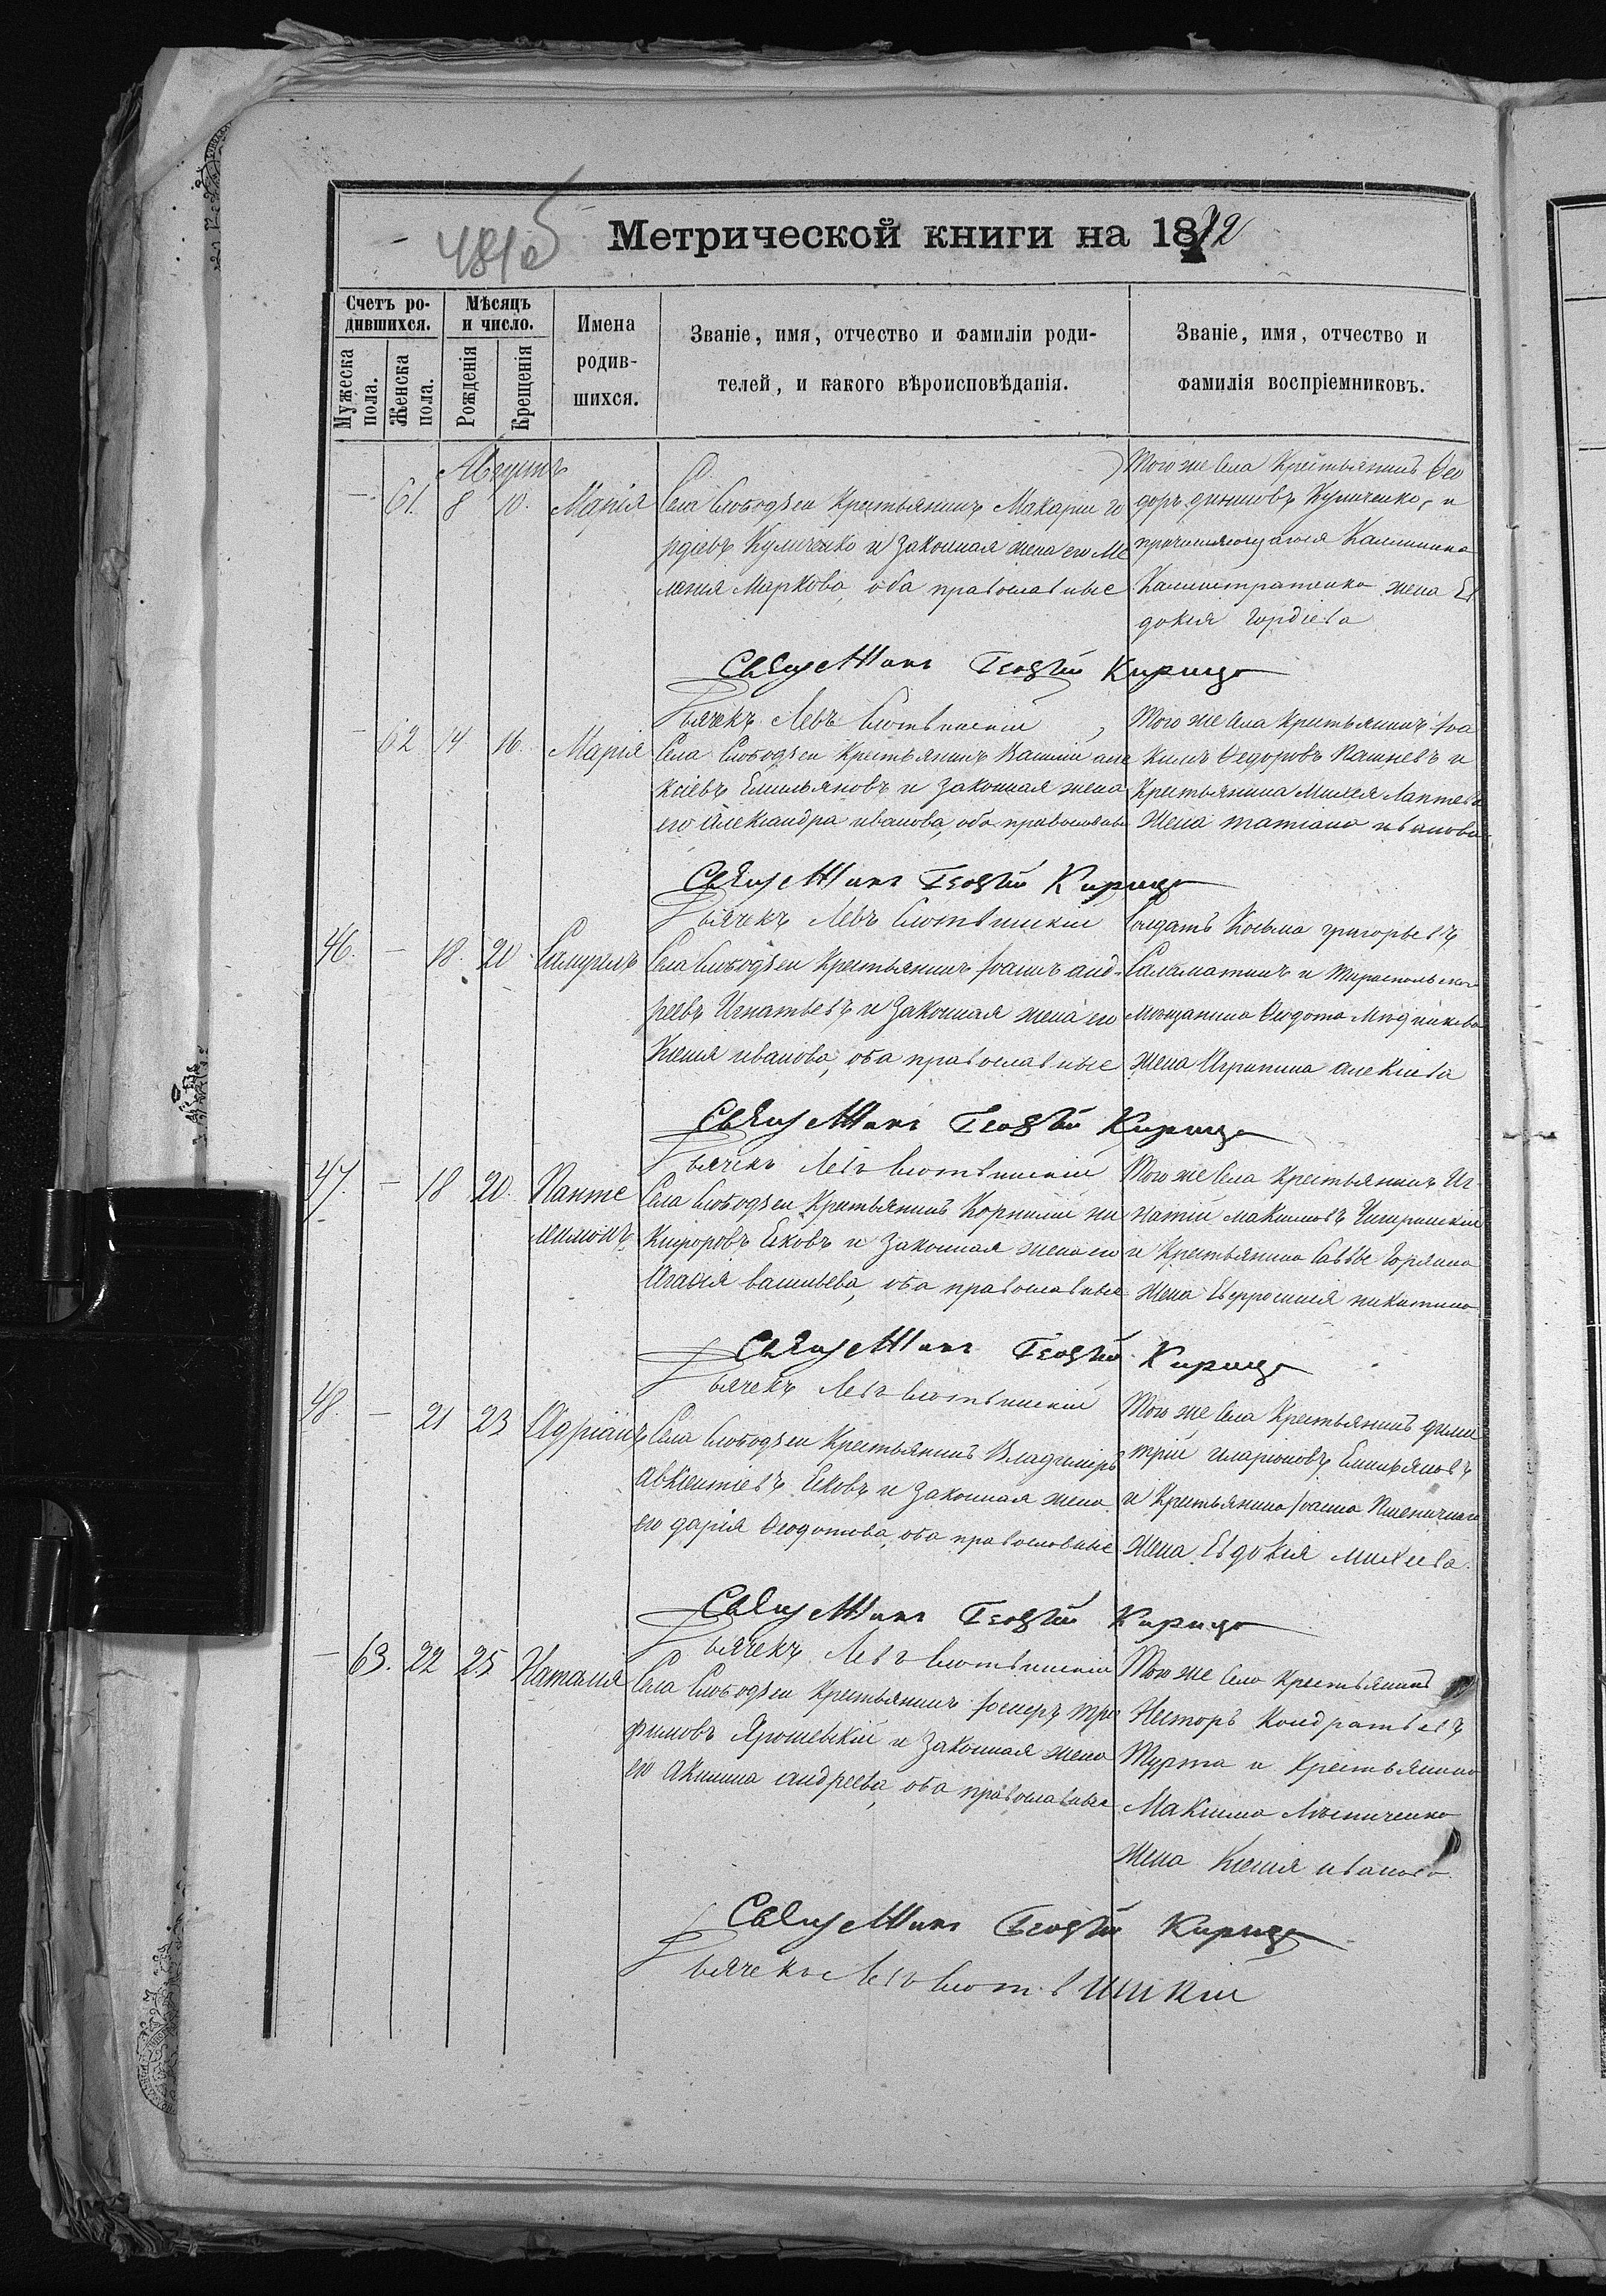 481об
Метрической книги на 1872
Счетъ ро-
дившихся.
Мѣсяцъ
и число.
Имена
родив-
шихся.
Званіе, имя, отчество и фамиліи роди-
телей, и какого вѣроисповѣданія.
Званіе, имя, отчество и
фамилія воспріемниковъ.
Мужеска
пола.
Женска
пола.
Рожденія
Крещенія
Августъ
- 61. 8 10. Марія
Села Слободзеи Крестьянинъ Макарий го
рдіевъ Куличенко и законная жена его Ме
ланія Маркова, оба православные
Того же Села Крестьянинъ Ѳео
доръ Куличенко, и
Каллистратенко жена Ев
докія Гордіева
Священникъ Георгій Кирица
Дьячекъ Левъ Слотвинскій
- 62 14 16. Марія
Села Слободзеи Крестьянинъ Василій але
ксіевъ Емильяновъ и законная жена
его Александра иванова, оба православные
Того же Села Крестьянинъ Іоа
кимъ Ѳедоровъ Пашневъ и
Крестьянина Михея Лаптева
Жена татіана иванова
Священникъ Георгій Кирица
Дьячекъ Левъ Слотвинскій
46. - 18. 20 Самуилъ
Села Слободзеи Крестьянинъ Іоаннъ анд-
реевъ Игнатьевъ и законная жена его
Ксенія иванова, оба православные
Солдатъ Косьма григорьевъ
Саламатинъ и Тираспольскаго
мѣщанина Ѳедота Мѣдникова
жена Агрипина алексіева
Священникъ Георгій Кирица
Дьячекъ Левъ Слотвинскій
47. - 18 20. Панте
леимонъ
Села Слободзеи Крестьянинъ Корнилій ни
кифоровъ Ековъ и законная жена его
Агафія васильева, оба православные
Того же Села Крестьянинъ Иг-
натій максимовъ Чигринскій
и Крестьянина Саввы Горяина
Жена Евфросинія никитина
Священникъ Георгій Кирица
Дьячекъ Левъ Слотвинскій
48. - 21 23 Адріанъ
Села Слободзеи Крестьянинъ Владиміръ
авксентіевъ Ековъ и законная жена
его дарія Ѳеодотова, оба православные
Того же Села Крестьянинъ дими
трій иларіоновъ Емильяновъ
и Крестьянина Іоанна Пшеничнаго
Жена Евдокія михеева.
Священникъ Георгій Кирица
Дьячекъ Левъ Слотвинскій
- 63. 22 25 Наталія
Села Слободзеи Крестьянинъ Іосифъ тро
фимовъ Ярошевскій и законная жена
его акилина андреева, оба православные
Того же Села Крестьянинъ
Несторъ Кондратьевъ
Турта и Крестьянина
Максима
Жена Ксенія иванова.
Священникъ Георгій Кирица
Дьячекъ Левъ Слотвинскій